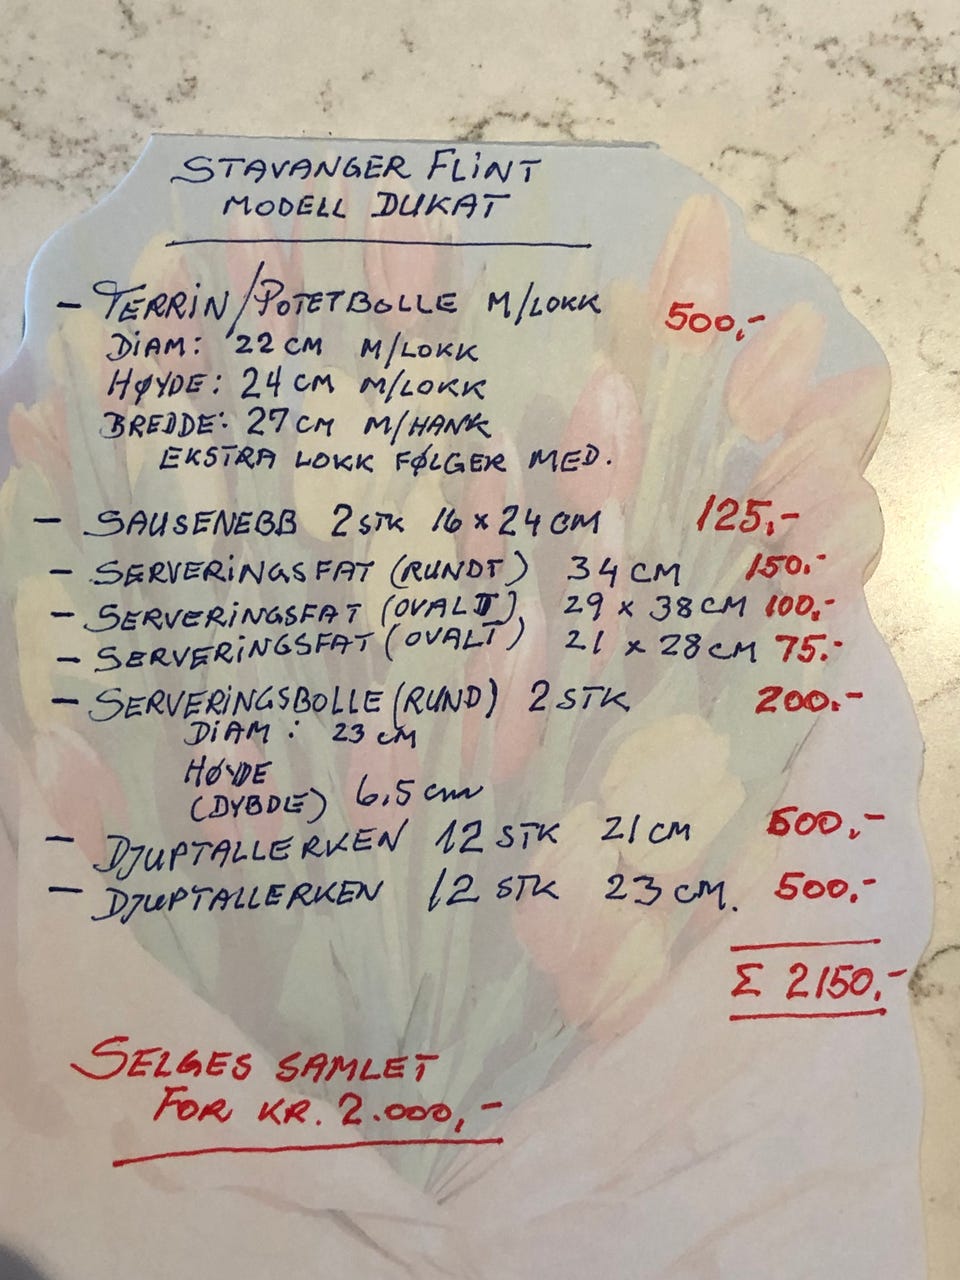 STAVANGER FLINT
MODELL DUKAT
- TERRIN/POTETBOLLE M/LOKK 500,-
DIAM: 22 CM M/LOKK
HØYDE: 24 CM M/LOKK
BREDDE: 27 CM M/HANK
EKSTRA LOKK FØLGER MED.
- SAUSENEBB 2 STK 16 x 24 CM 125,-
- SERVERINGSFAT (RUNDT) 34 CM 150,-
- SERVERINGSFAT (OVALT) 29 x 38 CM 100,-
- SERVERINGSFAT (OVALT) 21 x 28 CM 75,-
- SERVERINGSBOLLE (RUND) 2 STK 200,-
DIAM: 23 CM
HØYDE
(DYBDE) 6,5 cm
- DJUPTALLERKEN 12 STK 21 CM 500,-
- DJUPTALLERKEN 12 STK 23 CM. 500,-
Σ 2150,-
SELGES SAMLET
FOR KR. 2.000,-